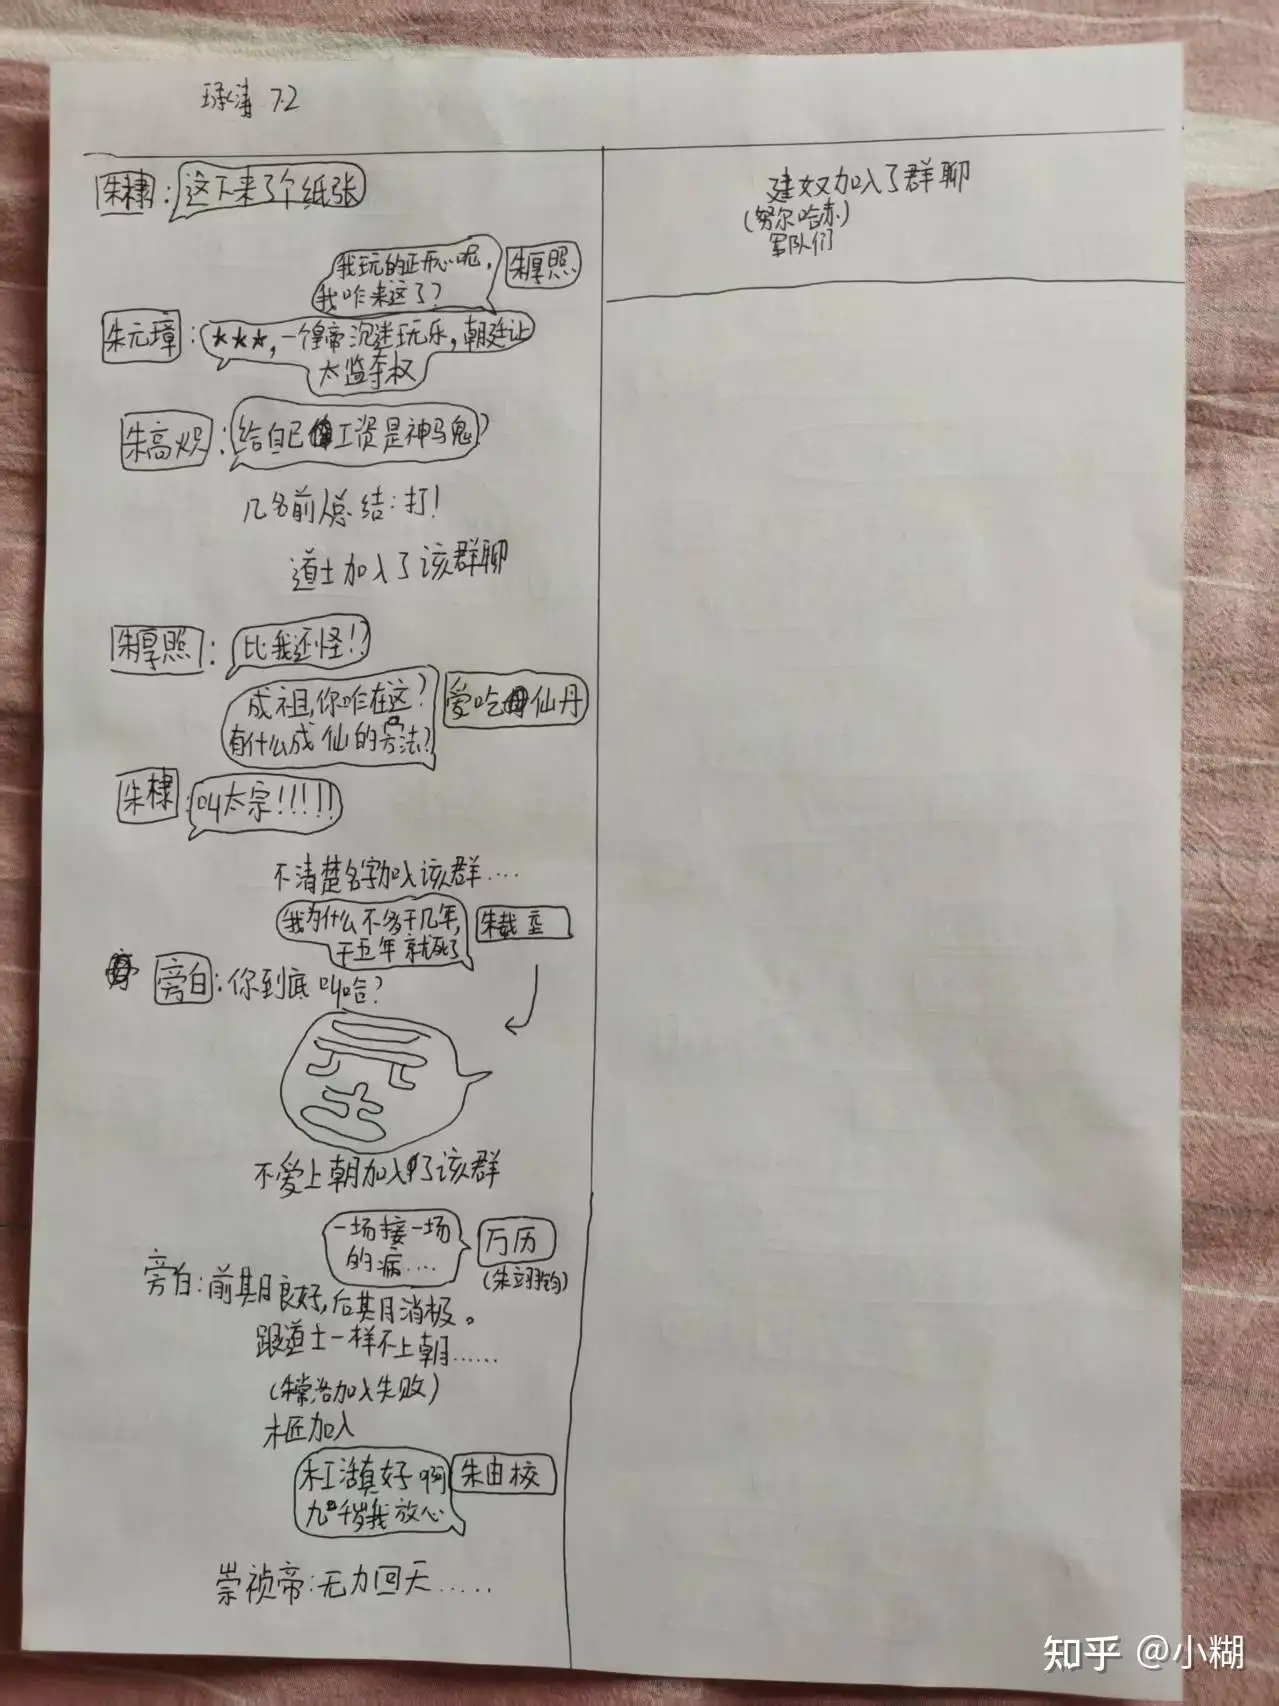 7.2
朱棣:这下来了个纸张
我玩的正开心呢,
我咋来这了?
朱厚照
朱元璋:★★★,一个皇帝沉迷玩乐,朝廷让
太监夺权
朱高炽:给自己工资是神马鬼?
几名前人总结:打!
道士加入了该群聊
朱厚照:比我还怪!?
成祖,你咋在这?
有什么成仙的方法?
爱吃仙丹
朱棣:叫太宗!!!!!
不清楚名字加入该群....
我为什么不多干几年,
干五年就死了
朱载坖
旁白:你到底叫啥?
坖
不爱上朝加入了该群
一场接一场
的病....
万历
(朱翊钧)
旁白:前期良好,后期消极。
跟道士一样不上朝......
(朱常洛加入失败)
木匠加入
木工活真好啊
九千岁我放心
朱由校
崇祯帝:无力回天.....
建奴加入了群聊
(努尔哈赤)
军队们
知乎 @小糊